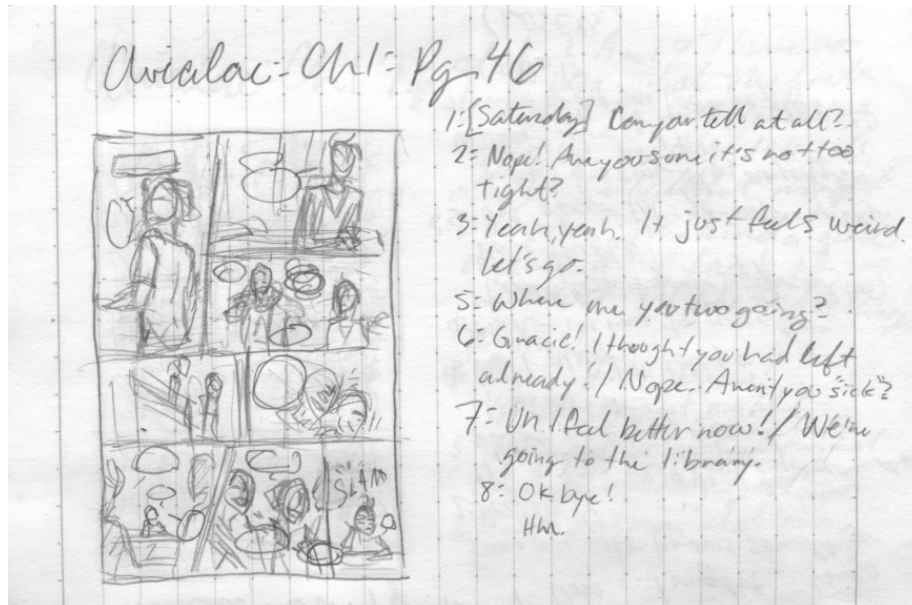 Avialae - Ch1 - Pg 46
1: [Saturday] Can you tell at all?
2: Nope! Are you sure it's not too
tight?
3: Yeah, yeah. It just feels weird.
Let's go.
5: Where are you two going?
6: Gracie! I thought you had left
already! / Nope. Aren't you "sick"?
7: Uh I feel better now! / We're
going to the library.
8: Ok bye!
Hm.
SLAM